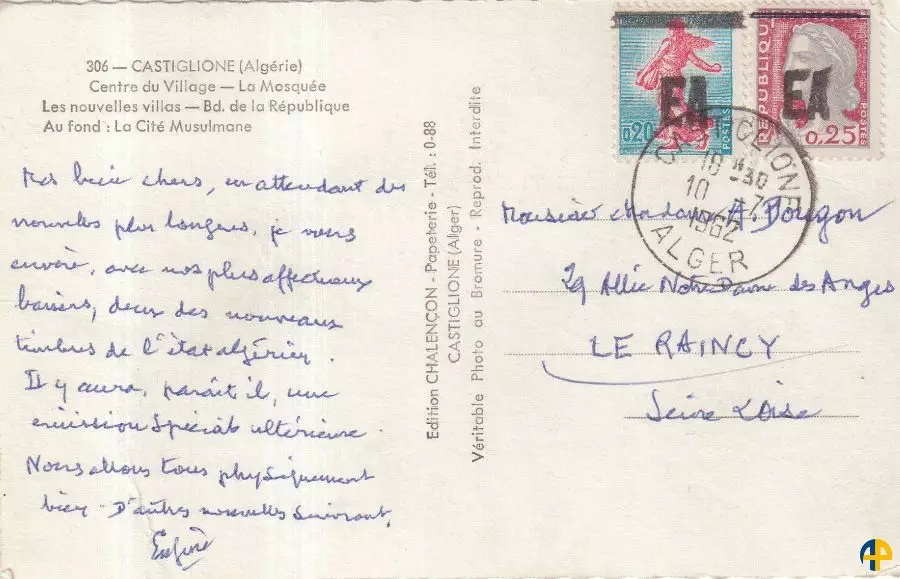 306 — CASTIGLIONE (Algérie)
Centre du Village — La Mosquée
Les nouvelles villas — Bd. de la République
Au fond : La Cité Musulmane
Mes bien chers, en attendant des
nouvelles plus longues, je vous
envoie, avec nos plus affectueux
baisers, deux des nouveaux
timbres de l'état algérien.
Il y aura, paraît il, une
émission spéciale ultérieure.
Nous allons tous physiquement
bien - D'autres nouvelles suivront,
Edition CHALENÇON - Papeterie - Tél. : 0-88
CASTIGLIONE (Alger)
Véritable Photo au Bromure - Reprod. Interdite
0,20
POSTES
EA
REPUBLIQUE
EA
0,25
POSTES
CASTIGLIONE
16 H 30
10 -7
1962
ALGER
A. Dougon
29 Allée Notre Dame des Anges
LE RAINCY
Seine & Oise